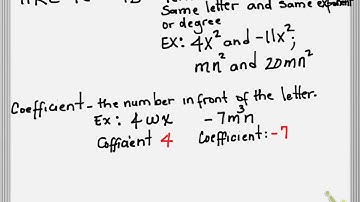 Same letter and same exponent
or degree
Ex: 4x² and -11x²;
mn² and 20mn²
Coefficient - the number in front of the letter.
Ex: 4wx -7m³n
Cofficient 4 Coefficient: -7